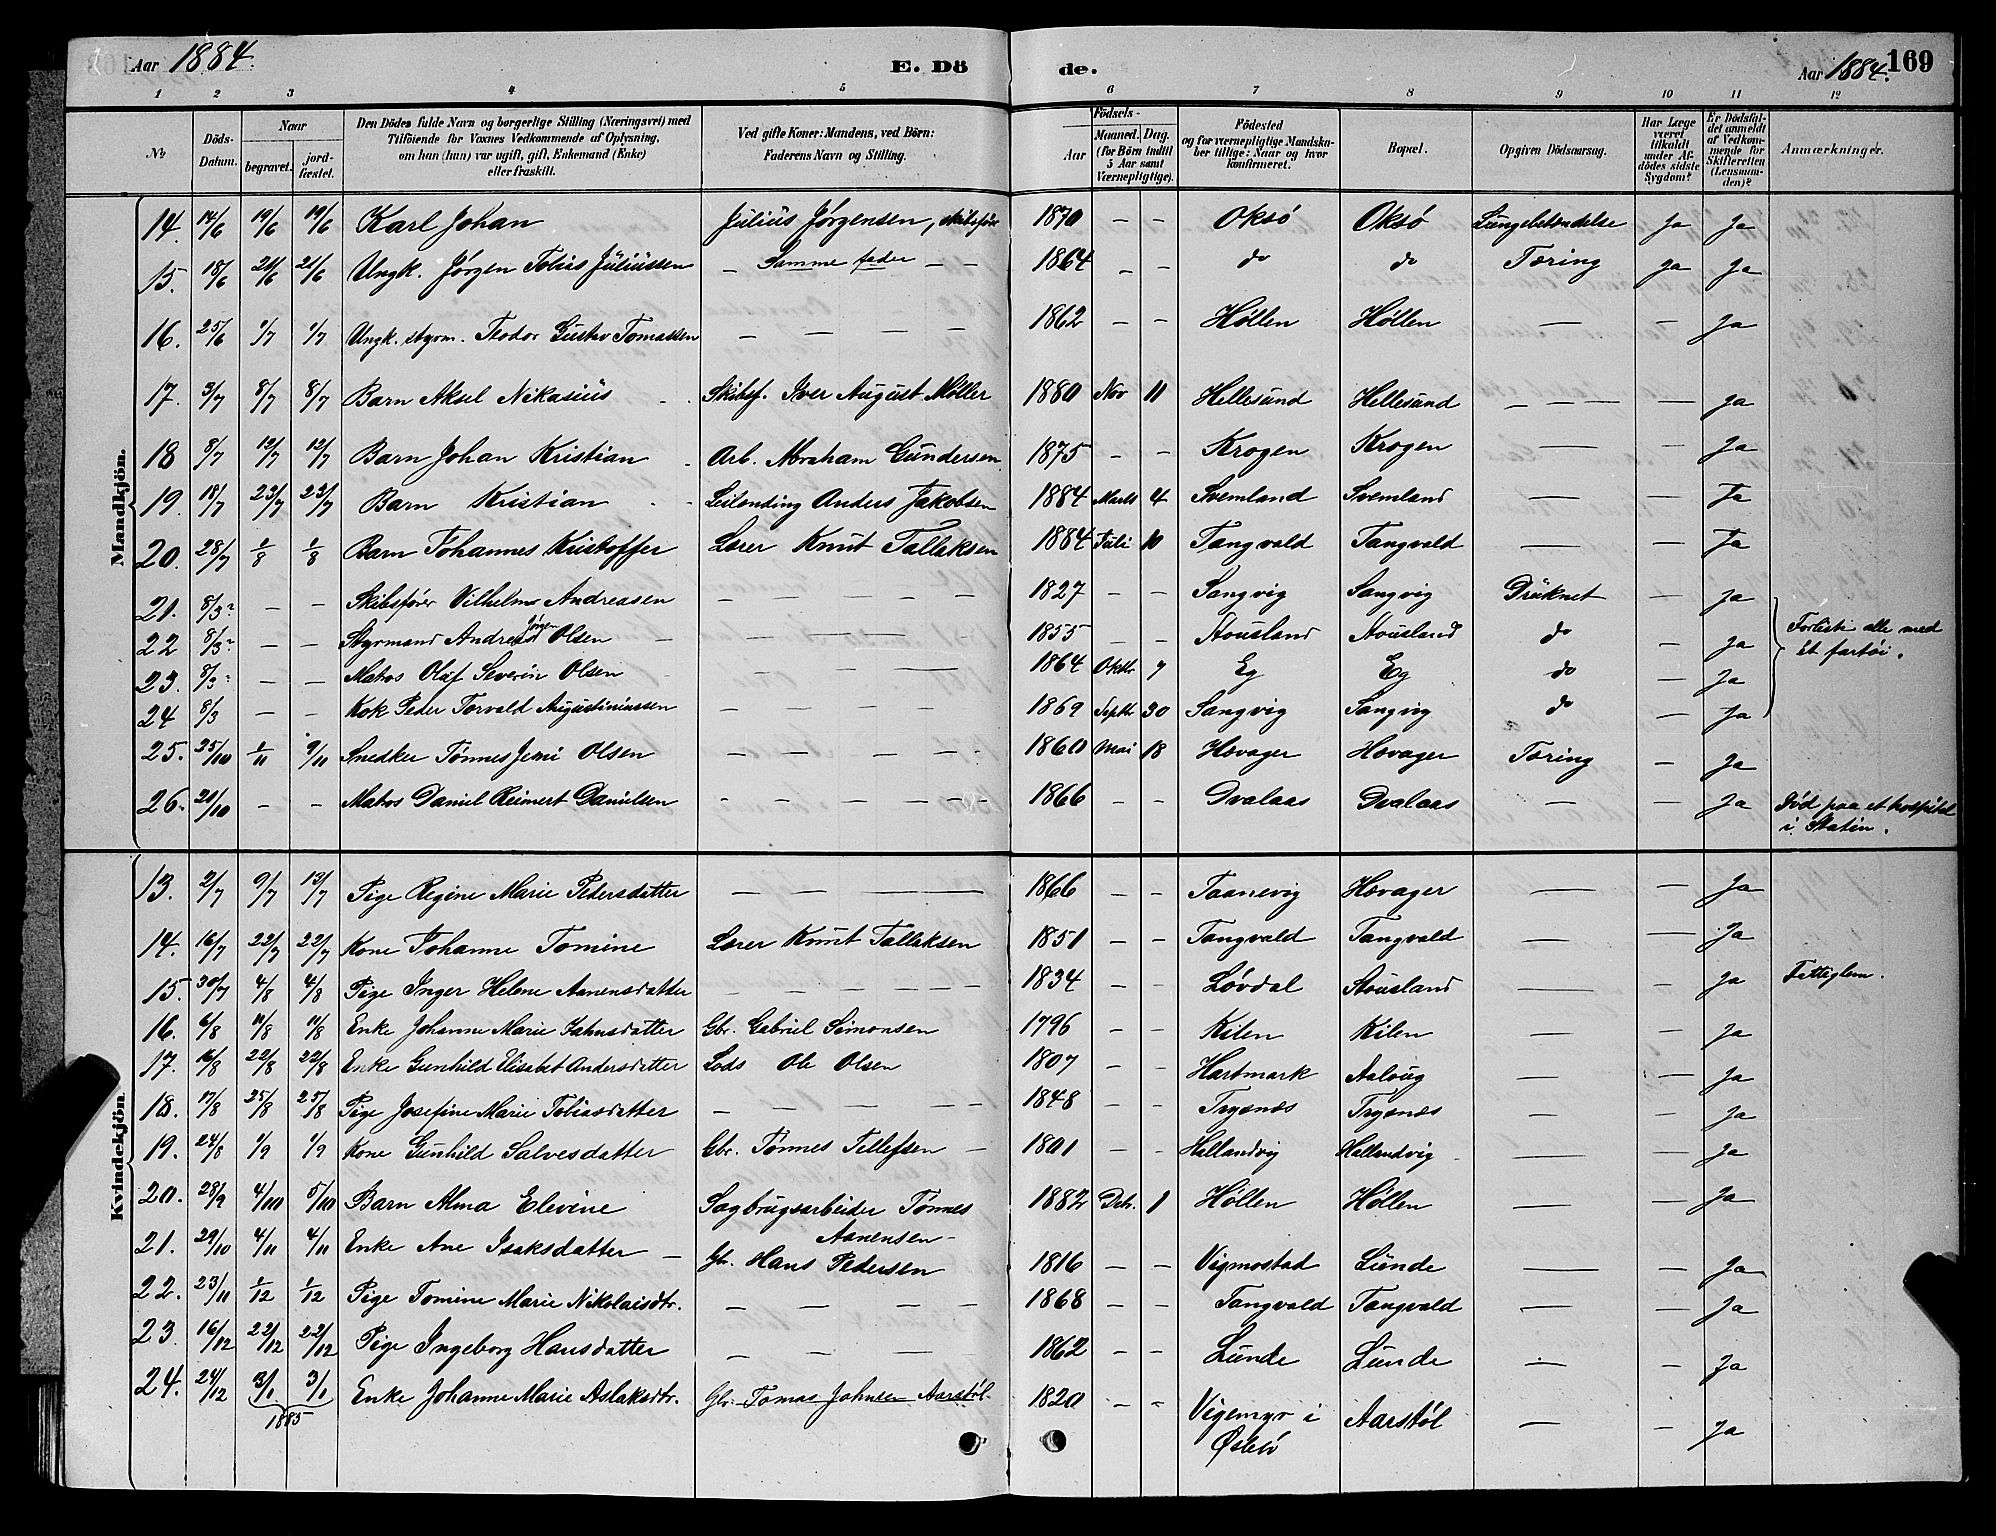 Aar 1884. E. Dö de. Aar 1884. 169
1 2 3 4 5 6 7 8 9 10 11 12
No Döds-Datum. Naar begravet. jord-fæstet. Den Dödes fulde Navn og borgerlige Stilling (Næringsvei) med Tilföiende for Voxnes Vedkommende af Oplysning, om han (hun) var ugift, gift, Enkemand (Enke) eller fraskilt. Ved gifte Koner: Mandens, ved Börn: Faderens Navn og Stilling. Födsels- Aar Maaned. Dag. (for Börn indtil 5 Aar samt Værnepligtige). Födested og for værnepligtige Mandskaber tillige: Naar og hvor konfirmeret. Bopæl. Opgiven Dödsaarsag. Har Læge været tilkaldt under Afdödes sidste Sygdom? Er Dödsfaldet anmeldt af Vedkommende for Skifteretten (Lensmanden)? Anmærkninger.
Mandkjön.
14. 14/6 19/6 19/6 Karl Johan Julius Jörgensen, skibsför 1870 - - Oksö Oksö Lungebetændelse Ja Ja
15. 18/6 21/6 21/6 Ungk. Jörgen Tobias Juliussen - Samme fader - - 1864 - - do do Tæring Ja Ja
16. 25/6 1/7 1/7 Ungk. styrm. Teodor Gustav Tomassen - - - - 1862 - - Höllen Höllen - - Ja
17. 3/7 8/7 8/7 Barn Aksel Nikasius Skibsf. Iver August Möller 1880 Nov 11 Hellesund Hellesund - - Ja
18 8/7 12/7 12/7 Barn Johan Kristian Arb. Abraham Gundersen 1875 - - Krogen Krogen - - Ja
19. 18/7 23/7 23/7 Barn Kristian Leilending Anders Jakobsen 1884 Marts 4 Svemland Svemland - - Ja
20. 28/7 1/8 1/8 Barn Johannes Kristoffer Lærer Knut Tallaksen 1884 Juli 10 Tangvald Tangvald - - Ja
21. 8/3? - - Skibsförer Vilhelm Andreasen - - - - 1827 - - Langvig Langvig Druknet - Ja
22 8/3? - - Styrmand Andreas Jörgen Olsen - - - - 1855 - Stousland Stousland do Ja Forliste alle med
23. 8/3? - - Matros Olaf Severin Olsen - - - 1864 Oktbr 7 Eg Eg do - Ja Et fartöi.
24 8/3 - - Kok Peder Torvald Augustiniussen - - - - 1869 Septbr 30 Langvig Langvig do - Ja
25. 25/10 1/11 9/11 Snedker Tönnes Jemi Olsen - - - - 1860 Mai 18 Hævager Hævager Tæring - Ja
26. 21/10 - - Matros Daniel Reinert Danielsen - - - - - 1866 - - Dvalaas Dvalaas - - Ja Död paa et hospital
i Statin.
Kvindekjön.
13. 2/7 9/7 13/7 Pige Regine Marie Pedersdatter - - - 1866 - - Taanevig Hævager - - Ja
14. 16/7 22/7 22/7 Kone Johanne Tomine Lærer Knut Tallaksen 1851 - - Tangvald Tangvald - - Ja
15. 30/7 4/8 4/8 Pige Inger Helene Aanensdatter - - - - 1834 - - Lövdal Stousland - - Ja Fattiglem.
16. 6/8 11/8 11/8 Enke Johanne Marie Jahnsdatter Gbr. Gabriel Simonsen 1796 - - Kilen Kilen - - Ja
17. 16/8 22/8 22/8 Enke Gunhild Elisabet Andersdatter Lods Ole Olsen 1807 - - Hartmark Aaloug - - Ja
18. 17/8 25/8 25/8 Pige Josefine Marie Tobiasdatter - - - - 1848 - - Trysnes Trysnes - - Ja
19. 24/8 1/9 1/9 Kone Gunhild Salvesdatter Gbr. Tönnes Tellefsen - 1801 - - Hallandvig Hallandvig - - Ja
20. 28/9 4/10 5/10 Barn Alma Elevine Sagbrugsarbeider Tönnes 1882 Debr. 1 Höllen Höllen - - Ja
Aanensen-
21. 29/10 4/11 4/11 Enke Ane Isaksdatter - Gbr. Hans Pedersen 1816 - - Vigmostad Lunde - - Ja
22. 23/11 1/12 1/12 Pige Tomine Marie Nikolaisdtr. - - - - 1868 - - Tangvald Tangvald - - Ja
23. 16/12 22/12 22/12 Pige Ingeborg Hansdatter - - - - 1862 - - Lunde Lunde - - Ja
24. 24/12 3/1 3/1 Enke Johanne Marie Aslaksdtr. Gbr. Tomas Johnsen Aarstöl. 1820 - - Vigemyr i Aarstöl - - Ja
1885 Öslebö